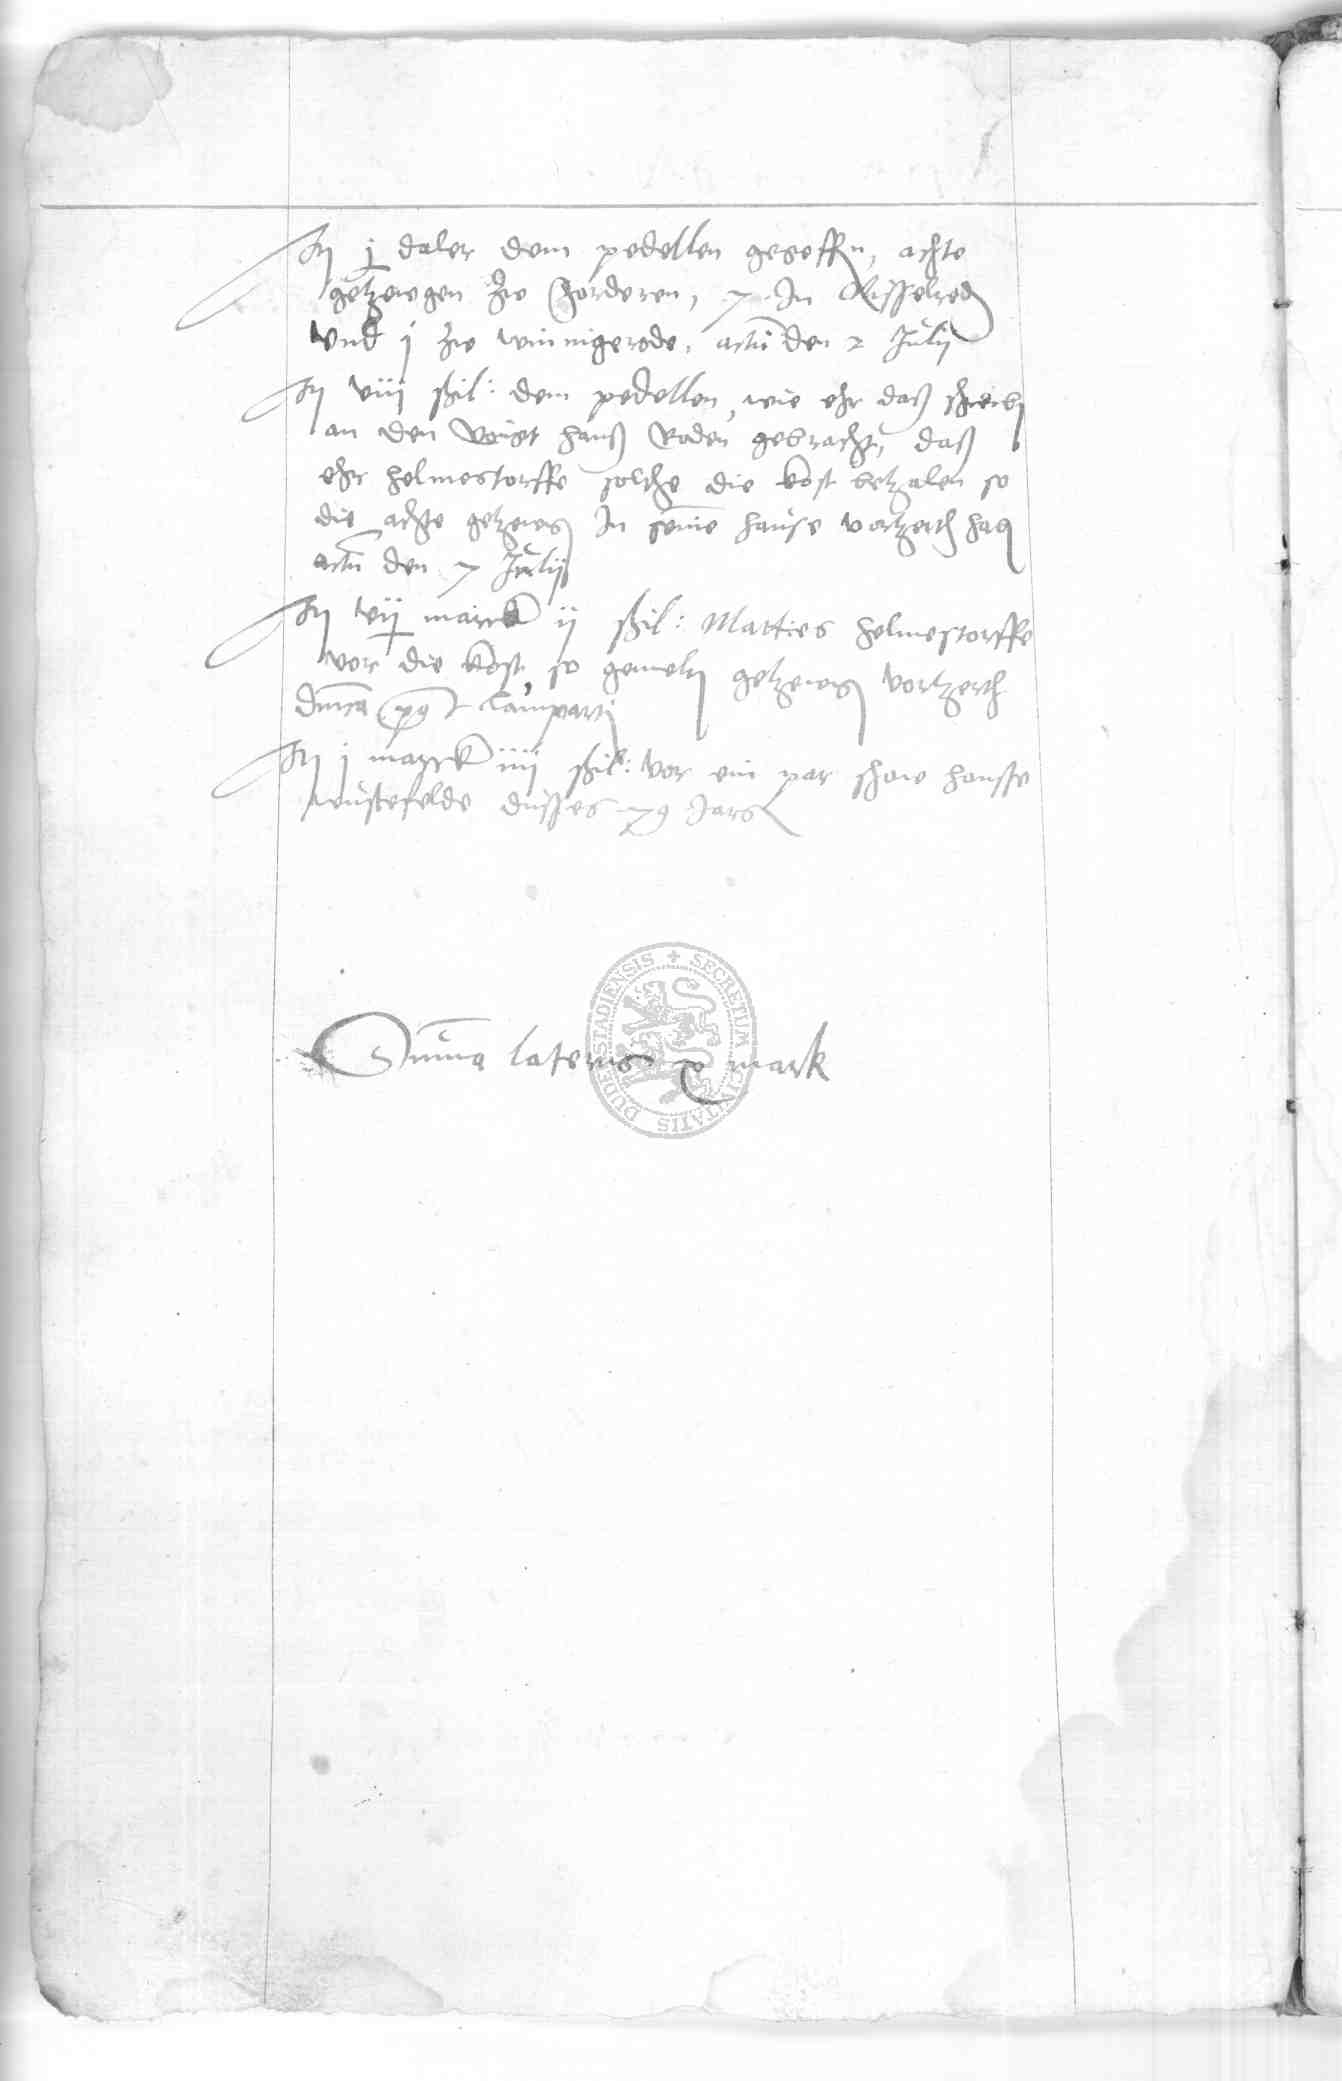 It j daler dem pedellen gegeffen, achte
getzewgen zw forderen, 7 In Bisselrod
vnd j zw winnigerode, actu den 2 Julij
It viij ßil: dem pedellen, wie ehr daß schreib
an den Voigt hanß Roden gebracht, daß
ehr helmestorffe solche die kost betzalen so
die achte getzewg In seine hause vortzerth hab
actu den 7 Julij
It vij marck ij ßil: Matties helmestorffe
vor die kost, so gemelt getzewg vortzerth
dnica post Lamparti
It j marck iiij ßil: vor ein par schow hansse
wustefelde dusses 79 Jars
Suma lateris mark
SECRETUM CIVITATIS DUDERSTADIENSIS